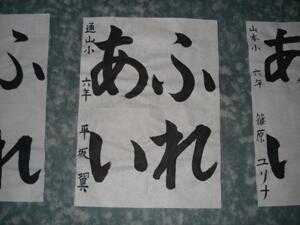 山本小 六年 篠原 ユリナ
ふれ
あい
通山小 六年 平坂 翼
ふれ